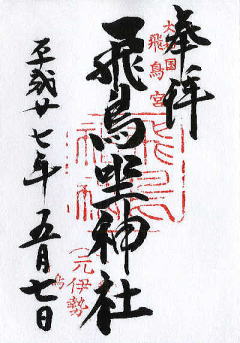 奉拝
大和国
飛鳥宮
飛鳥坐神社
元伊勢
平成廿七年 五月七日